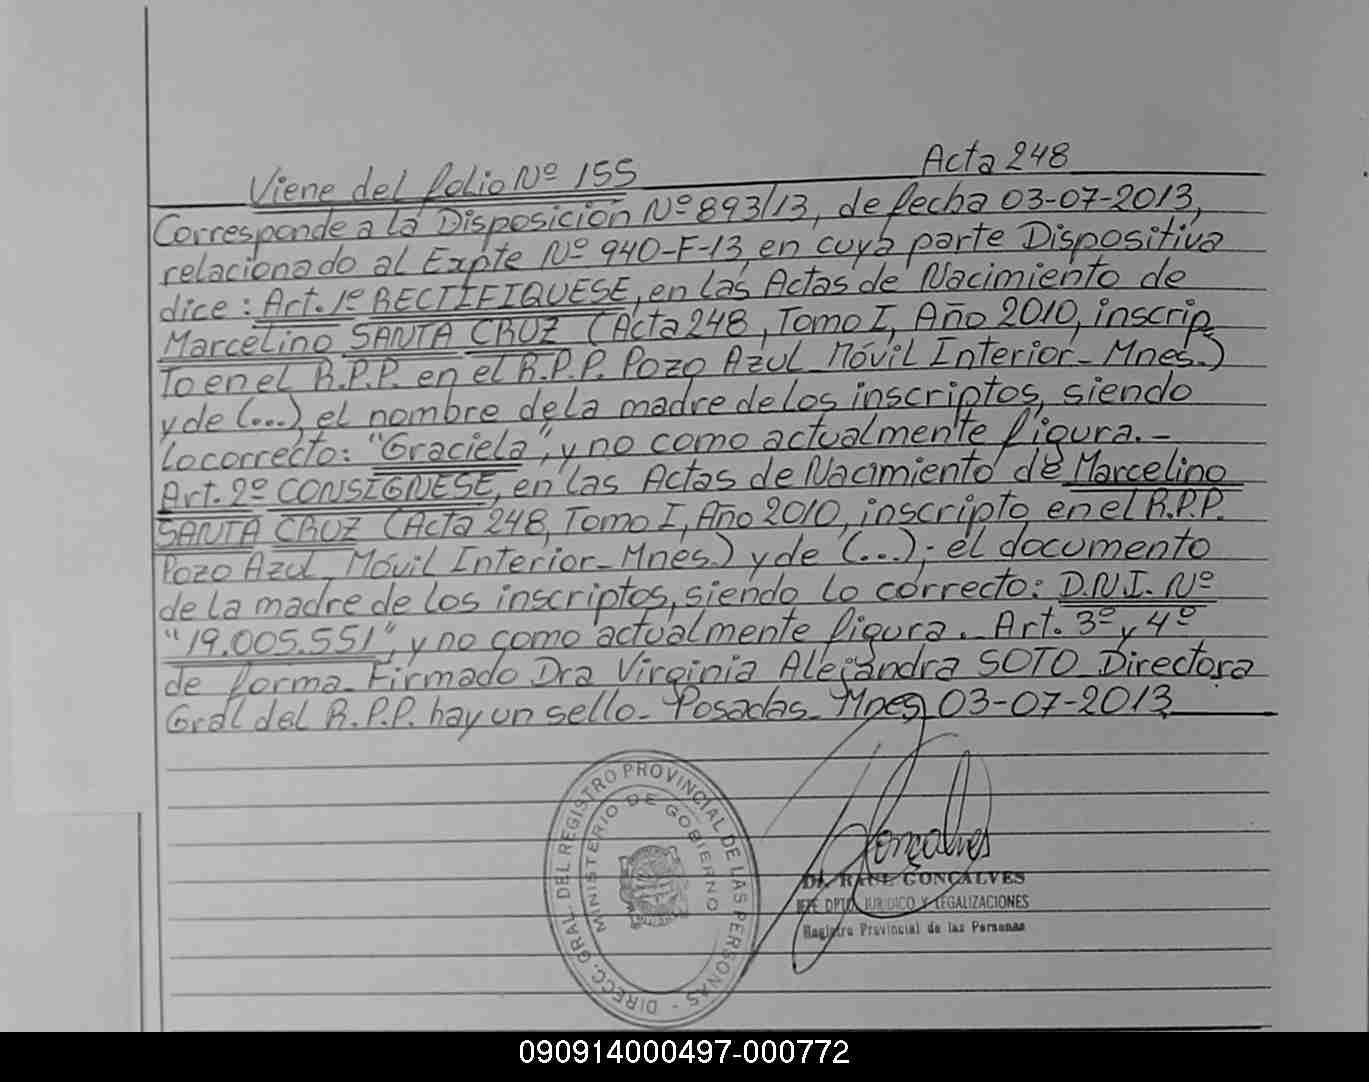 Viene del folio Nº 155 Acta 248
Corresponde a la Disposición Nº 893/13, de fecha 03-07-2013,
relacionado al Expte Nº 940-F-13, en cuya parte Dispositiva
dice: Art. 1º RECTIFIQUESE, en las Actas de Nacimiento de
Marcelino SANTA CRUZ (Acta 248, Tomo I, Año 2010, inscrip
To en el R.P.P. en el R.P.P. Pozo Azul Móvil Interior_Mnes.)
y de (...), el nombre de la madre de los inscriptos, siendo
lo correcto: "Graciela", y no como actualmente figura.-
Art. 2º CONSIGNESE, en las Actas de Nacimiento de Marcelino
SANTA CRUZ (Acta 248, Tomo I, Año 2010, inscripto en el R.P.P.
Pozo Azul, Móvil Interior_Mnes.) y de (...); el documento
de la madre de los inscriptos, siendo lo correcto: D.N.I. Nº
"19.005.551", y no como actualmente figura. Art. 3º y 4º
de forma_Firmado Dra Virginia Alejandra SOTO_Directora
Gral del R.P.P. hay un sello_Posadas_Mnes, 03-07-2013
DIRECC. GRAL. DEL REGISTRO PROVINCIAL DE LAS PERSONAS -
MINISTERIO DE GOBIERNO
Gonçalves
Dr. RAUL GONÇALVES
JEFE DPTO. JURIDICO Y LEGALIZACIONES
Registro Provincial de las Personas
090914000497-000772